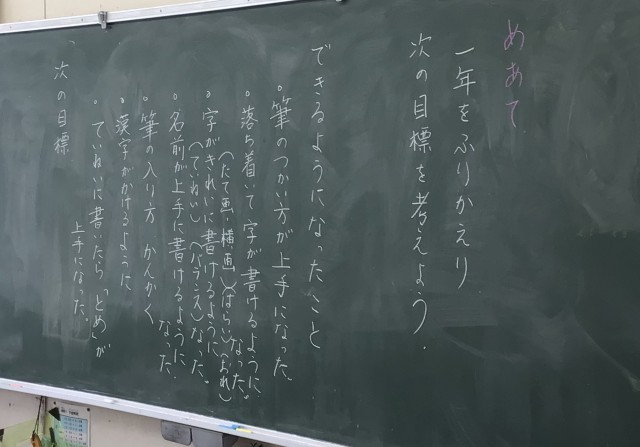 めあて
一年をふりかえり
次の目標を考えよう.
できるようになったこと
。筆のつかい方が上手になった.
。落ち着いて字が書けるように
なった。
(たて画・横画)(はらい)(おれ)
。字がきれいに書けるように
なった。
(ていねい)(バランス)
。名前が上手に書けるように
なった.
。筆の入り方 かんかく
。漢字がかけるように
。ていねいに書いたら「とめ」が
上手になった。
次の目標